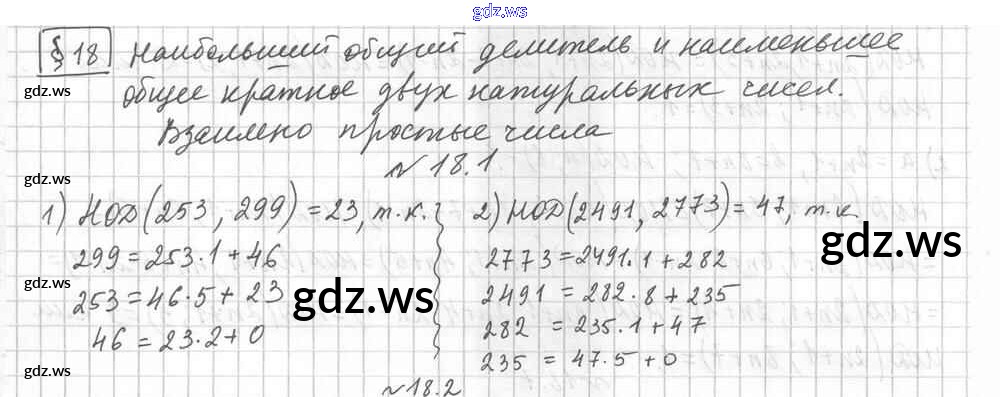 gdz.ws
§ 18 Наибольший общий делитель и наименьшее
общее кратное двух натуральных чисел.
gdz.ws
Взаимно простые числа
№ 18.1.
gdz.ws
1) НОД(253, 299) = 23, т.к.
299 = 253·1 + 46
253 = 46·5 + 23
46 = 23·2 + 0
2) НОД(2491, 2773) = 47, т.к
2773 = 2491·1 + 282
2491 = 282·8 + 235
282 = 235·1 + 47
235 = 47·5 + 0
gdz.ws
gdz.ws
gdz.ws
gdz.ws
№18.2